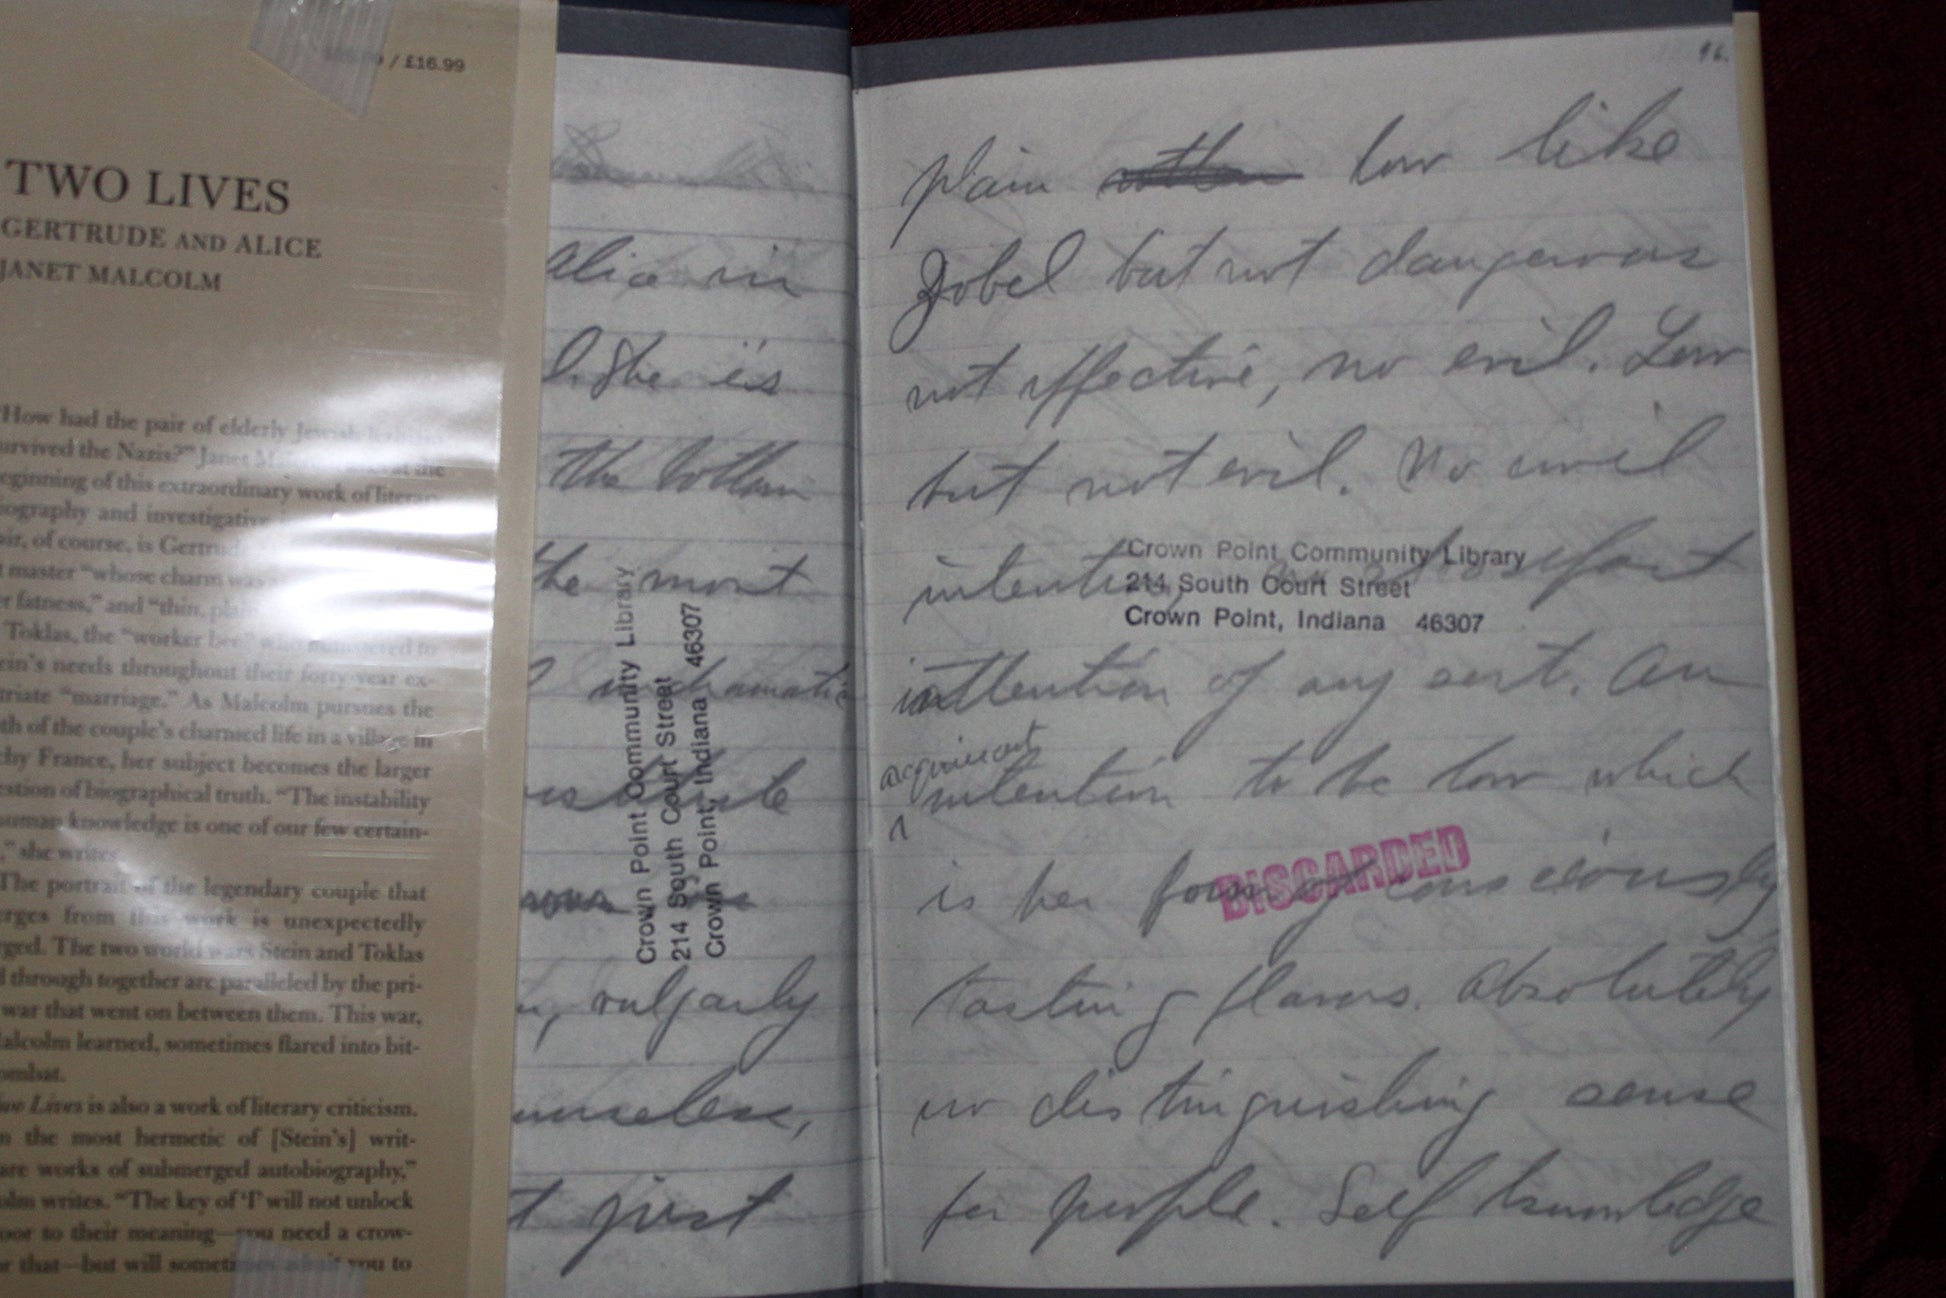 / £16.99
TWO LIVES
GERTRUDE AND ALICE
JANET MALCOLM
"How had the pair of elderly Jewish
urvived the Nazis?" Janet
eginning of this extraordinary work of literary
ography and investigative
air, of course, is Gertrude
t master "whose charm was
r fatness," and "thin,
Toklas, the "worker bee" who ministered to
ein's needs throughout their forty-year ex-
triate "marriage." As Malcolm pursues the
th of the couple's charmed life in a village in
hy France, her subject becomes the larger
estion of biographical truth. "The instability
human knowledge is one of our few certain-
," she writes.
The portrait of the legendary couple that
erges from this work is unexpectedly
rged. The two world wars Stein and Toklas
d through together are paralleled by the pri-
war that went on between them. This war,
Malcolm learned, sometimes flared into bit-
ombat.
wo Lives is also a work of literary criticism.
n the most hermetic of [Stein's] writ-
are works of submerged autobiography,"
olm writes. "The key of 'I' will not unlock
oor to their meaning—you need a crow-
r that—but will sometimes admit you to
Alice in
She is
the bottom
the most
undramatic
, vulgarly
t just
Crown Point Community Library
214 South Court Street
Crown Point, Indiana 46307
96.
plain low like
Zobel but not dangerous
not effective, no evil. Low
but not evil. No evil
intention, in fact
intention of any sort. An
acquiescent
intention to be low which
is her form of consciously
tasting flavors. Absolutely
no distinguishing sense
for people. Self knowledge
Crown Point Community Library
214 South Court Street
Crown Point, Indiana 46307
DISCARDED